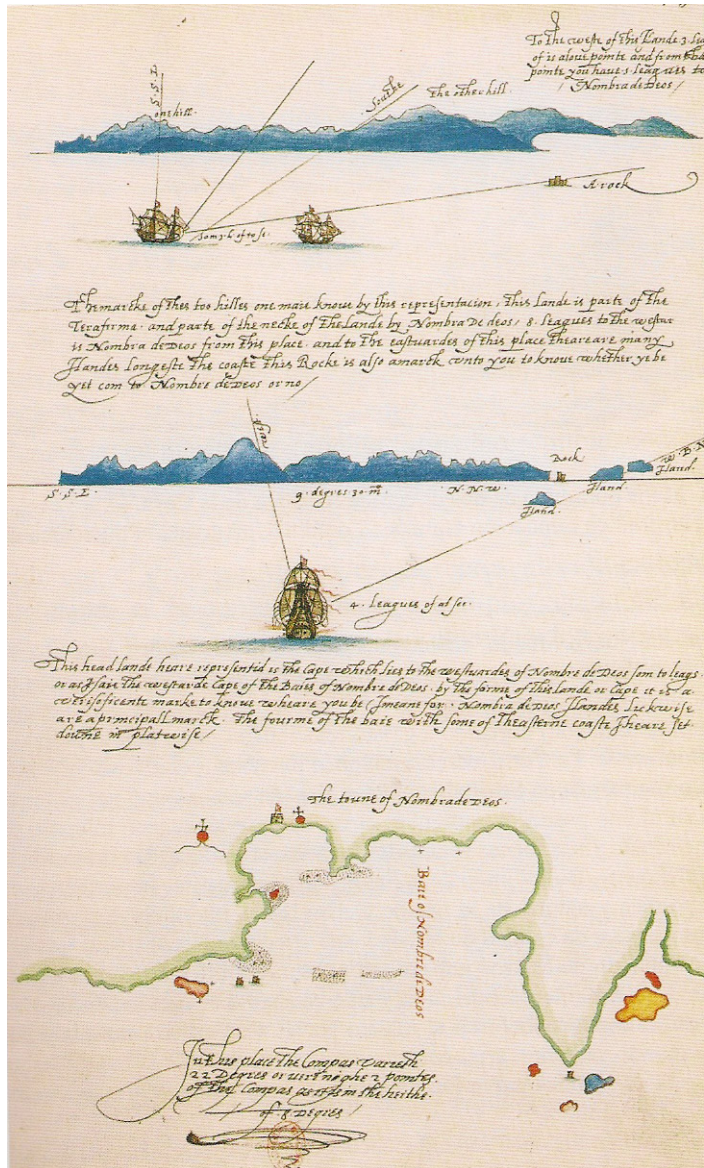 To the weste of this Lande 3. Lea
of is a love pointe and from tha
pointe you have 5 leagues to
/ Nombra de Deos /
S. S. E
one hill.
Southe
The other hill.
A rock
Som 3 L. of to se.
The marcke of thes too hilles one maie know by this representacion, This lande is parte of the
Terafirma. and parte of the necke of the Lande by Nombra De deos / 8. Leagues to the westar
is Nombra de Deos from this place. and to the eastuardes of this place theare are many
Ilandes Longeste the coaste This Rocke is also a marck unto you to know whether ye be
yet com to Nombre de Deos or no /
Rock
W. B. N
Iland.
Iland.
Iland.
S. S. E
9. degres 30. m
N. N. W.
4. Leagues of at see.
This head lande heare representid is the Cape which lies to the westuardes of Nombre de Deos som to leags
or as I saie The westarde Cape of the Baies of Nombre de Deos. by the forme of this lande or Cape it is a
marke to know wheare you be I meane for. Nombra de Deos Ilandes Luckwise
are a principall marck. The fourme of the baie with some of The asterne coaste I heare set
doune in platwise /
The toune of Nombra de Deos.
Baie of Nombre de Deos
In this place the Compas varieth
22 Degres or neghe 2 pointes.
of the Compas as it is in the heithe.
of 8 Degres /